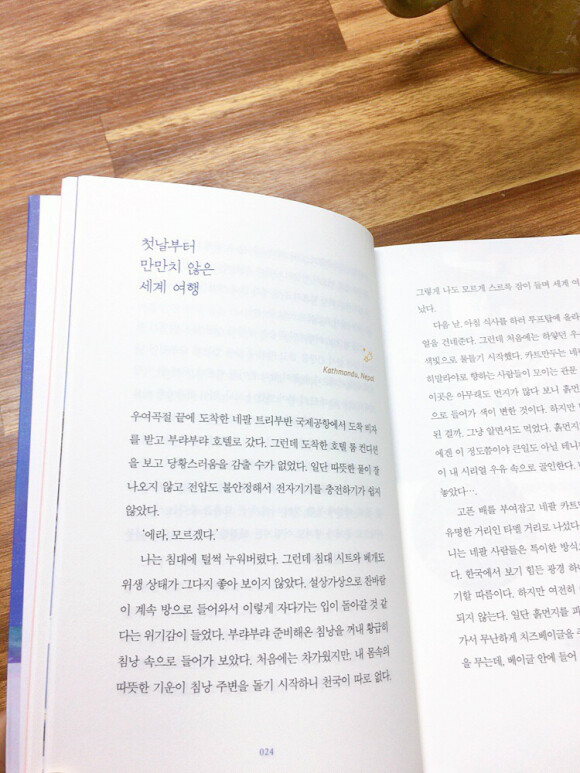 첫날부터
만만치 않은
세계 여행
Kathmandu, Nepal
우여곡절 끝에 도착한 네팔 트리부반 국제공항에서 도착 비자
를 받고 부랴부랴 호텔로 갔다. 그런데 도착한 호텔 룸 컨디션
을 보고 당황스러움을 감출 수가 없었다. 일단 따뜻한 물이 잘
나오지 않고 전압도 불안정해서 전자기기를 충전하기가 쉽지
않았다.
‘에라, 모르겠다.’
나는 침대에 털썩 누워버렸다. 그런데 침대 시트와 베개도
위생 상태가 그다지 좋아 보이지 않았다. 설상가상으로 찬바람
이 계속 방으로 들어와서 이렇게 자다가는 입이 돌아갈 것 같
다는 위기감이 들었다. 부랴부랴 준비해온 침낭을 꺼내 황급히
침낭 속으로 들어가 보았다. 처음에는 차가웠지만, 내 몸속의
따뜻한 기운이 침낭 주변을 돌기 시작하니 천국이 따로 없다.
024
그렇게 나도 모르게 스르륵 잠이 들며 세계 여
났다.
다음 날, 아침 식사를 하러 루프탑에 올라
얼을 건네준다. 그런데 처음에는 하얗던 우
색빛으로 물들기 시작했다. 카트만두는 네
히말라야로 향하는 사람들이 모이는 관문
이곳은 아무래도 먼지가 많다 보니 흙먼
으로 들어가 색이 변한 것이다. 하지만
된 걸까. 그냥 알면서도 먹었다. 흙먼지
에겐 이 정도쯤이야 큰일도 아닐 테니
이 내 시리얼 우유 속으로 골인한다.
놓았다….
고픈 배를 부여잡고 네팔 카트
유명한 거리인 타멜 거리로 나섰다
니는 네팔 사람들은 특이한 방식으
다. 한국에서 보기 힘든 광경 하
기할 따름이다. 하지만 여전히
되지 않는다. 일단 흙먼지를 피
가서 무난하게 치즈베이글을
을 무는데, 베이글 안에 들어